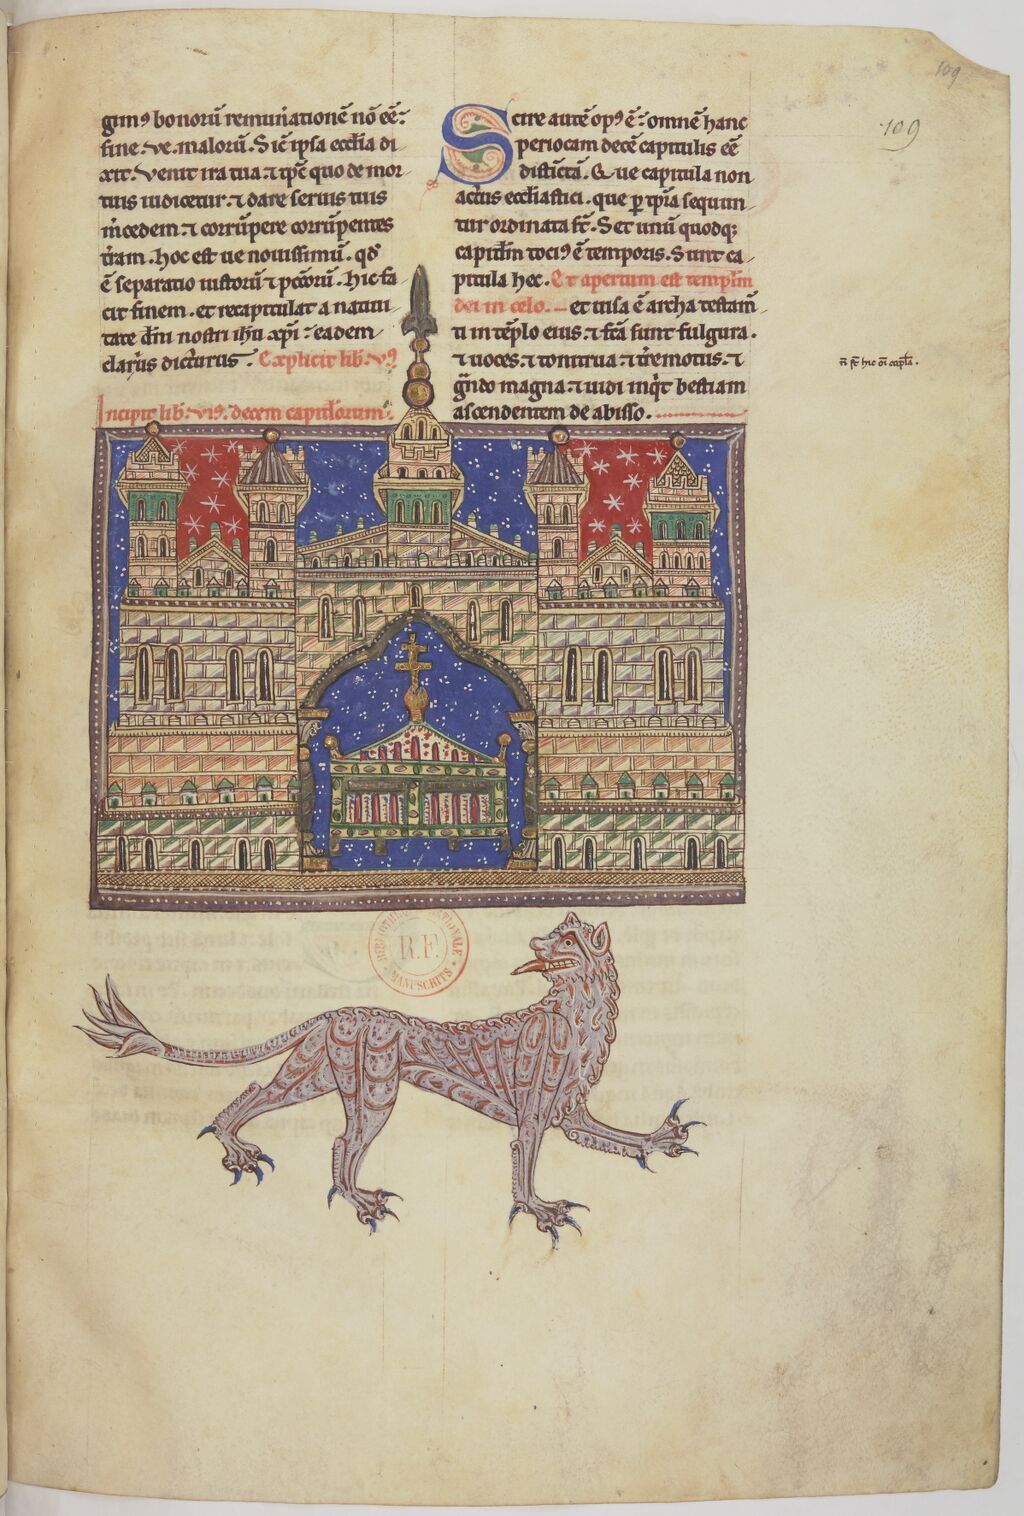 gim⁹ bonorū remun̄ationē nō eē:
fine. ve. malorū. Sic̄ ipsa eccƚia di
xit. Venit ira tua. ⁊ tp̄c quo de mor
tuis iudicetur. ⁊ dare seruis tuis
m̄cedem: ⁊ corrūpere corrūpentes
t̄ram. hoc est ve nouissimū. qđ
ē separatio iustorū ⁊ pc̄corū. hic fa
cit finem. et recapitulat a natiui
tate dn̄i nostri ihū xp̄i : eadem
clari⁹ dictūrus. Explicit lib. v⁹
Incipit lib. vi⁹. decem capitl̄orum.
Scire autē op⁹ ē : omnē hanc
periocam decē capitulis eē
distīctā. Que capitula non
act⁹ ecclīastici. que p tp̄ra sequun
tur ordinata sƚ. Set unū quodq;
capitl̄m toci⁹ ē temporis. Sunt ca
pitula hec. Et apertum est templ̄m
dei in celo. et uisa ē archa testam̄
ti in tēplo eius. ⁊ fc̄a sunt fulgura.
⁊ uoces. ⁊ tonitrua. ⁊ t̄remotus. ⁊
gn̄do magna. ⁊ uidi inq̇t bestiam
ascendentem de abisso.
109
109
BIBLIOTHÈQUE NATIONALE
R.F.
MANUSCRITS